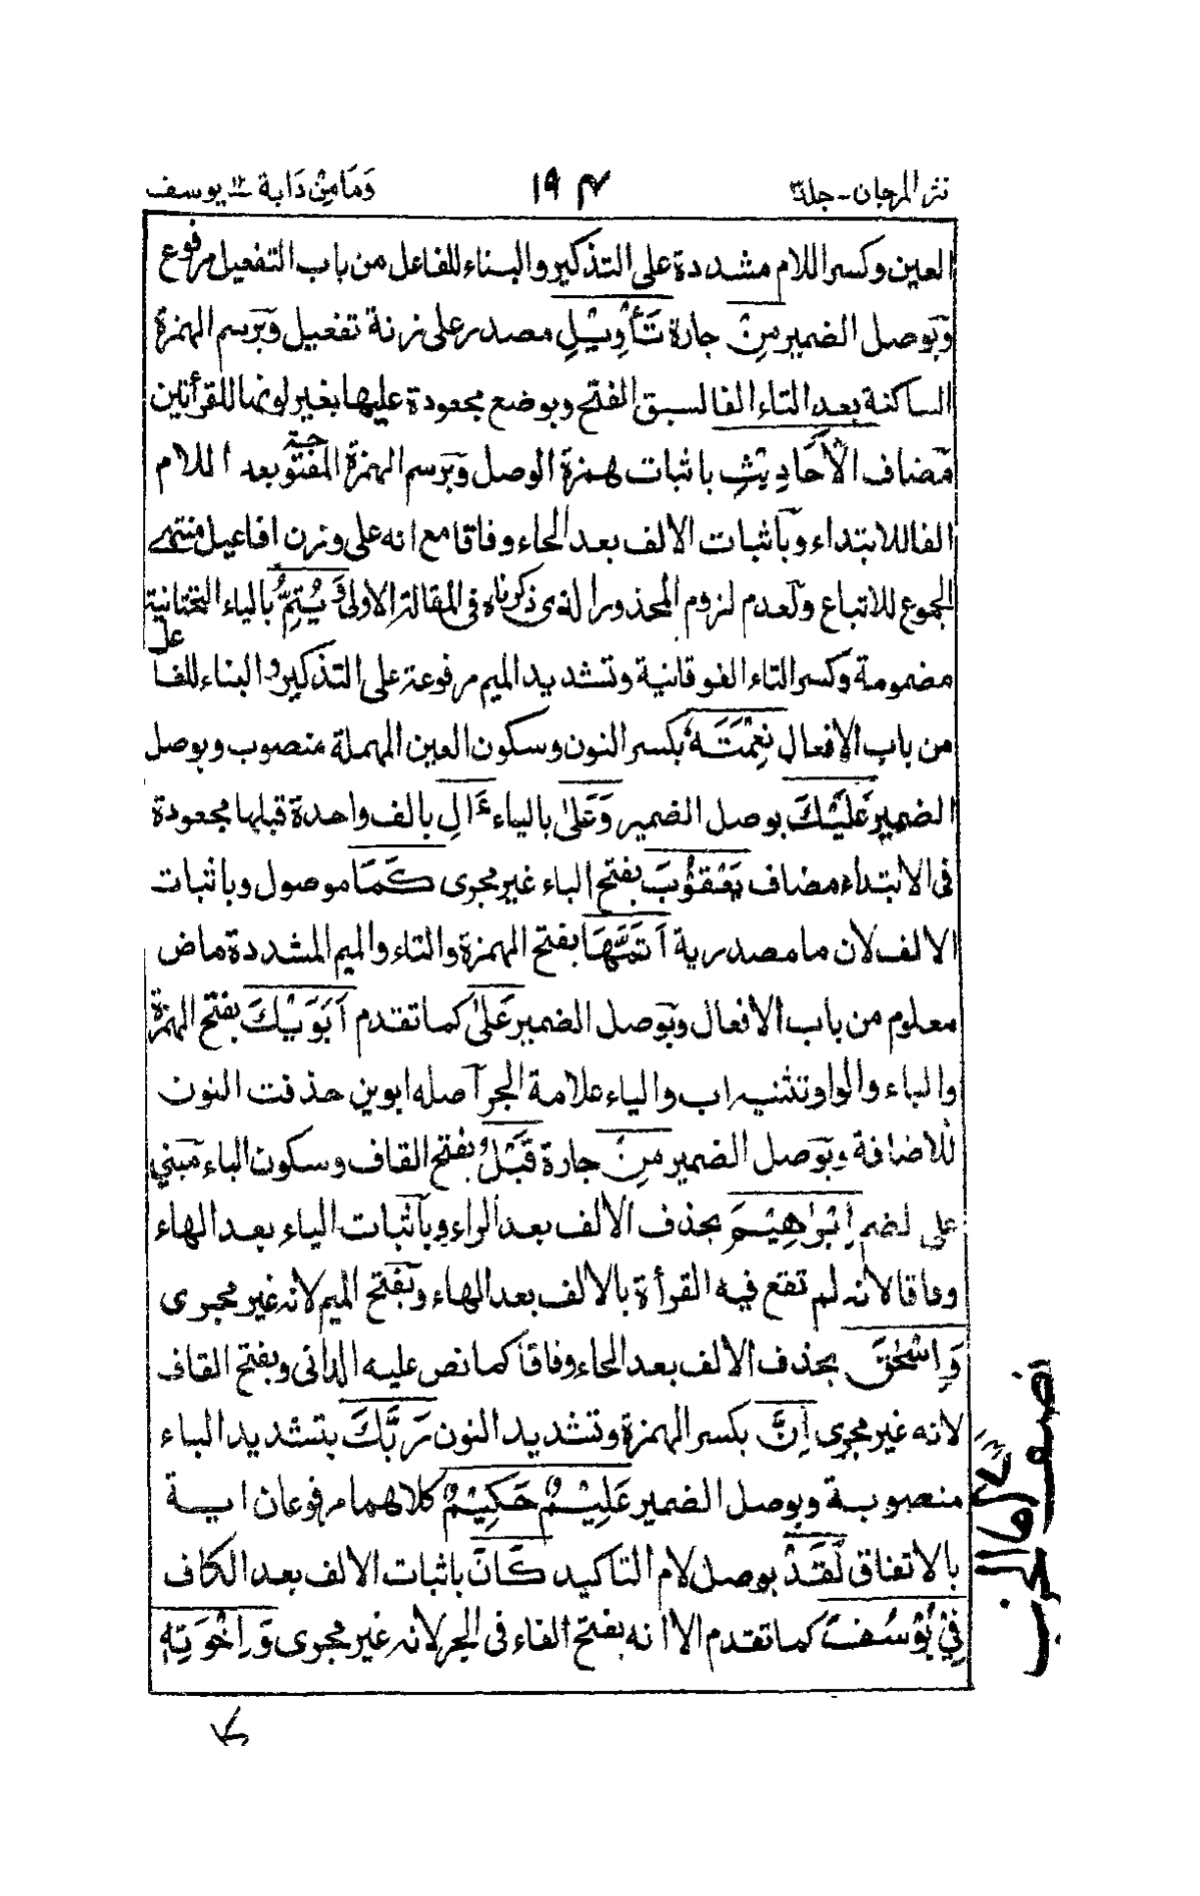 نثر المرجان - جلد ٣
١٩٤
وَمَا مِنْ دَابة ١٢ يوسف
العين وكسر اللام مشددة على التذكير والبناء للفاعل من باب التفعيل مرفوع
وبوصل الضمير مِنْ جارة تَأْوِيْلِ مصدر على زنة تفعيل وبرسم الهمزة
الساكنة بعد التاء الفا لسبق الفتح وبوضع مجعودة عليها بغير لونها للقرأتين
مضاف الْأَحَادِيْثِ باثبات همزة الوصل وبرسم الهمزة المفتوحة بعد اللام
الفا للابتداء وباثبات الالف بعد الحاء وفاقا مع انه على وزن افاعيل منتهى
الجموع للاتباع ولعدم لزوم المحذور الذى ذكرناه فى المقالة الاولى وَيُتِمُّ بالياء التحتانية
مضمومة وكسر التاء الفوقانية وتشديد الميم مرفوعة على التذكير والبناء للفاعل
من باب الافعال نِعْمَتَهٗ بكسر النون وسكون العين المهملة منصوب وبوصل
الضمير عَلَيْكَ بوصل الضمير وَعَلٰى بالياء ءَالِ بالف واحدة قبلها مجعودة
فى الابتداء مضاف يَعْقُوْبَ بفتح الباء غير مجرى كَمَا موصول وباثبات
الالف لان ما مصدرية اَتَمَّهَا بفتح الهمزة والتاء والميم المشددة ماض
معلوم من باب الافعال وبوصل الضمير عَلٰى كما تقدم اَبَوَيْكَ بفتح الهمزة
والباء والواو تثنية اب والياء علامة الجر اصله ابوين حذفت النون
للاضافة وبوصل الضمير مِنْ جارة قَبْلُ بفتح القاف وسكون الباء مبني
على لضم اِبْرٰهِيْمَ بحذف الالف بعد الراء وباثبات الياء بعد الهاء
وفاقا لانه لم تقع فيه القرأة بالالف بعد الهاء وبفتح الميم لانه غير مجرى
وَاِسْحٰقَ بحذف الالف بعد الحاء وفاقا كما نص عليه الدانى وبفتح القاف
لانه غير مجرى اِنَّ بكسر الهمزة وتشديد النون رَبَّكَ بتشديد الباء
منصوبة وبوصل الضمير عَلِيْمٌ حَكِيْمٌ كلاهما مرفوعان اية
بالاتفاق لَقَدْ بوصل لام التاكيد كَانَ باثبات الالف بعد الكاف
فِيْ يُوْسُفَ كما تقدم الا انه بفتح الفاء فى الجر لانه غير مجرى وَاِخْوَتِهٖ